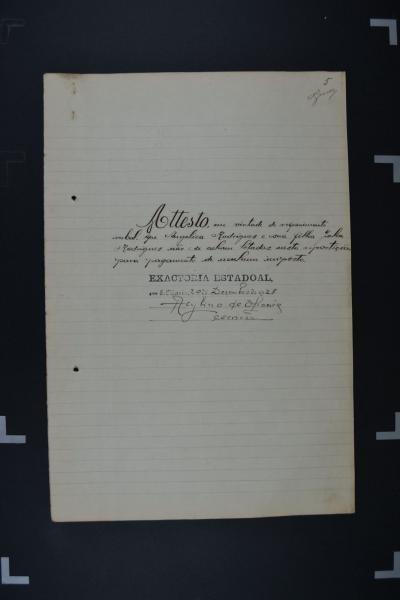 5
Attesto, em virtude de requerimento
verbal, que Angelica Rodrigues e sua filha
Rodrigues não se acham lotadas nesta repartição
para pagamento de nenhum imposto.
EXACTORIA ESTADOAL,
em de Dezembro de 1928
de
Escrivão